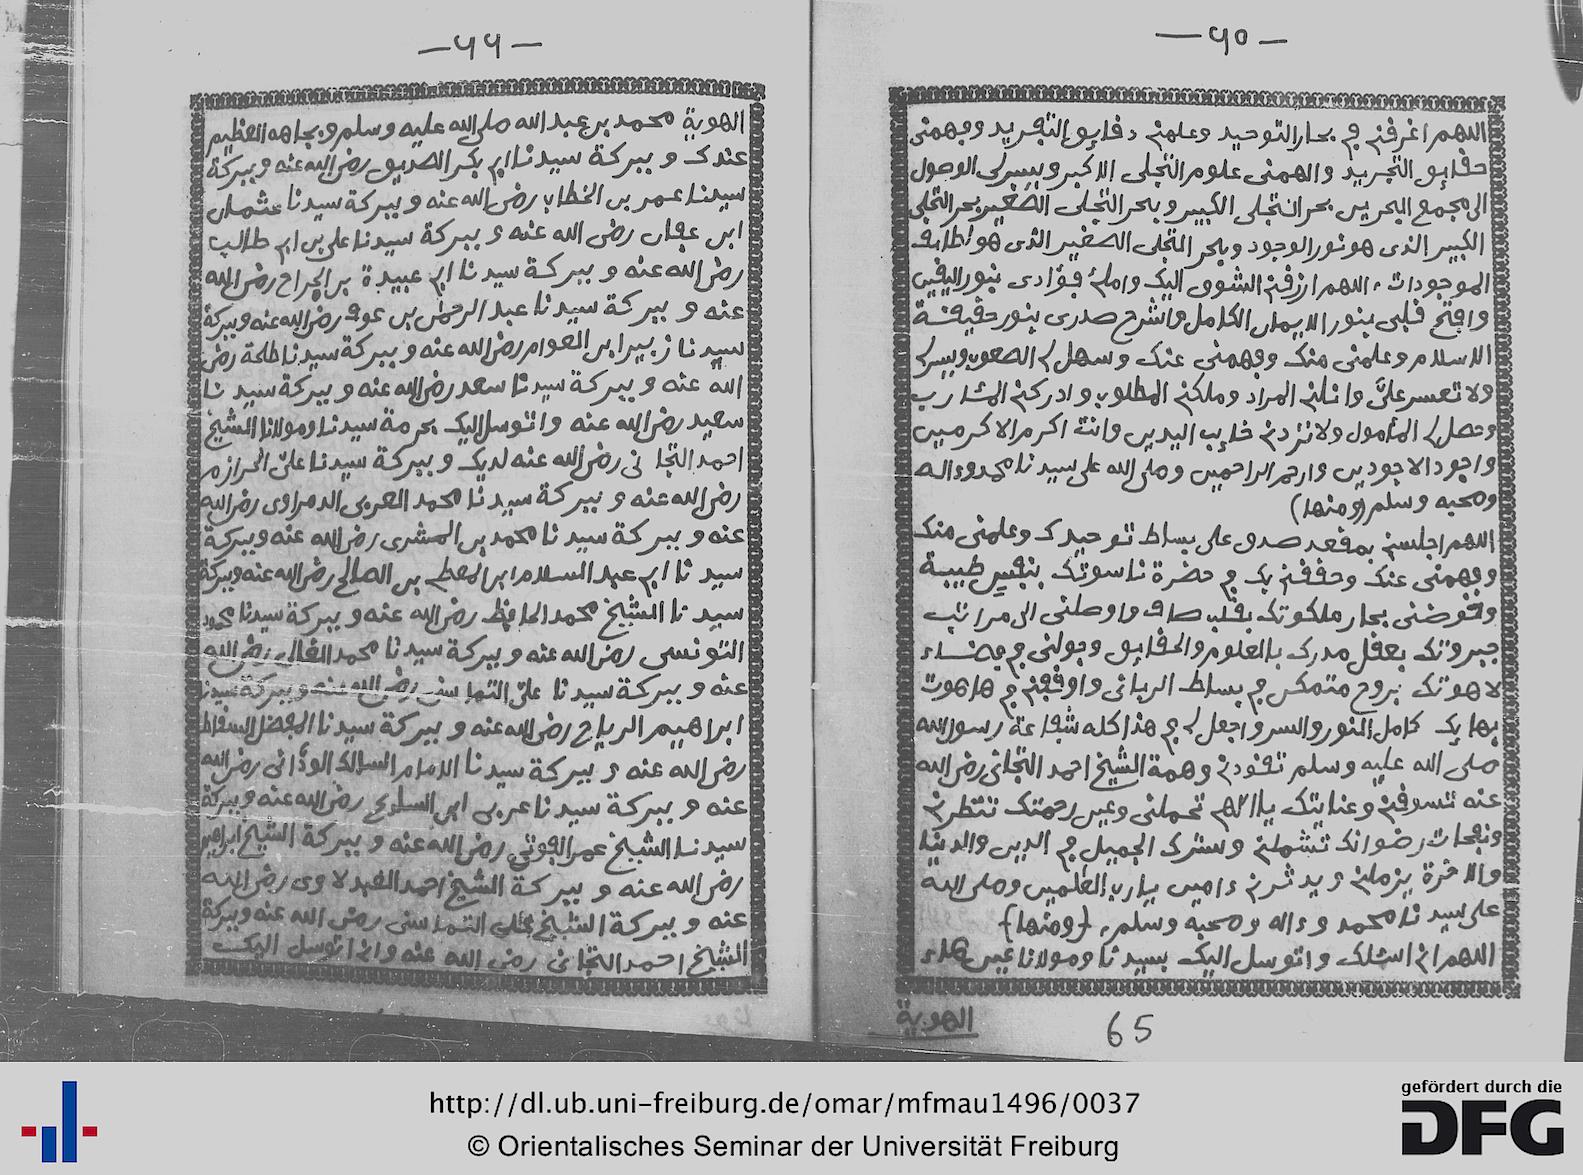 — ٦٥ —
اللهم اغرفني في بحار التوحيد وعلمني دقايق التفريد وفهمني
حقايق التجريد والهمني علوم التجلى الاكبر ويسرلي الوصول
الى مجمع البحرين بحر التجلى الكبير وبحر التجلى الصغير بحر التجلى
الكبير الذى هو نور الوجود وبحر التجلى الصغير الذى هو لطايف
الموجودات، اللهم ارزقني الشوق اليك واملأ فؤادى بنور اليقين
وافتح قلبى بنور الايمان الكامل واشرح صدرى بنور حقيقة
الاسلام وعلمنى منك وفهمنى عنك وسهل لي الصعوب ويسر لي
ولا تعسر علىّ وانلني المراد وملكني المطلوب وادركني المئارب
وحصل لي المأمول ولا تردني خايب اليدين وانت اكرم الاكرمين
واجود الاجودين وارحم الراحمين وصلى الله على سيدنا محمد وءاله
وصحبه وسلم (ومنها)
اللهم اجلسني بمقعد صدق على بساط توحيدك وعلمنى منك
وفهمنى عنك وحققني بك في حضرة ناسوتك بنفس طيبة
وخوضنى بحار ملكوتك بقلب صاف واوصلنى الى مراتب
جبروتك بعقل مدرك بالعلوم والحقايق وجولنى في فضاء
لاهوتك بروح متمكن في بساط الربانى واوقفني في هاهوت
بهايك كامل النور والسر واجعل لي في هذا كله شفاعة رسول الله
صلى الله عليه وسلم تقودني وهمة الشيخ احمد التجانى رضى الله
عنه تسوقني وعنايتك يا اللهم تحملنى وعين رحمتك تنتظرني
ونفحات رضوانك تشملني وسترك الجميل في الدين والدنيا
والاخرة يزملني ويدثرني ءامين يارب العلمين وصلى الله
على سيدنا محمد وءاله وصحبه وسلم، {ومنها}
اللهم اني اسئلك واتوسل اليك بسيدنا ومولانا عين هاء
الهوية
65
— ٦٦ —
الهوية محمد بن عبد الله صلى الله عليه وسلم وبجاهه العظيم
عندك وببركة سيدنا ابي بكر الصديق رضى الله عنه وببركة
سيدنا عمر بن الخطاب رضى الله عنه وببركة سيدنا عثمان
ابن عفان رضى الله عنه وببركة سيدنا على بن ابي طالب
رضى الله عنه وببركة سيدنا ابي عبيدة بن الجراح رضى الله
عنه وببركة سيدنا عبد الرحمن بن عوف رضى الله عنه وببركة
سيدنا زبير ابن العوام رضى الله عنه وببركة سيدنا طلحة رضى
الله عنه وببركة سيدنا سعد رضى الله عنه وببركة سيدنا
سعيد رضى الله عنه واتوسل اليك بحرمة سيدنا ومولانا الشيخ
احمد التجانى رضى الله عنه لديك وببركة سيدنا علىّ احرازم
رضى الله عنه وببركة سيدنا محمد العربى الدمراوى رضى الله
عنه وببركة سيدنا محمد بن المشرى رضى الله عنه وببركة
سيدنا ابي عبد السلام ابن المعطي بن الصالح رضى الله عنه وببركة
سيدنا الشيخ محمد الحافظ رضى الله عنه وببركة سيدنا محمود
التونسى رضى الله عنه وببركة سيدنا محمد الغالى رضى الله
عنه وببركة سيدنا علىّ التماسنى رضى الله عنه وببركة سيدنا
ابراهيم الرياح رضى الله عنه وببركة سيدنا المفضل السقاط
رضى الله عنه وببركة سيدنا الامام السالك الودّانى رضى الله
عنه وببركة سيدنا عربى ابن السايح رضى الله عنه وببركة
سيدنا الشيخ عمر الفوتي رضى الله عنه وببركة الشيخ ابراهيم
رضى الله عنه وببركة الشيخ احمد العبدلاوى رضى الله
عنه وببركة الشيخ على التماسنى رضى الله عنه وببركة
الشيخ احمد التجاني رضى الله عنه واني اتوسل اليك
http://dl.ub.uni-freiburg.de/omar/mfmau1496/0037
© Orientalisches Seminar der Universität Freiburg
gefördert durch die
DFG